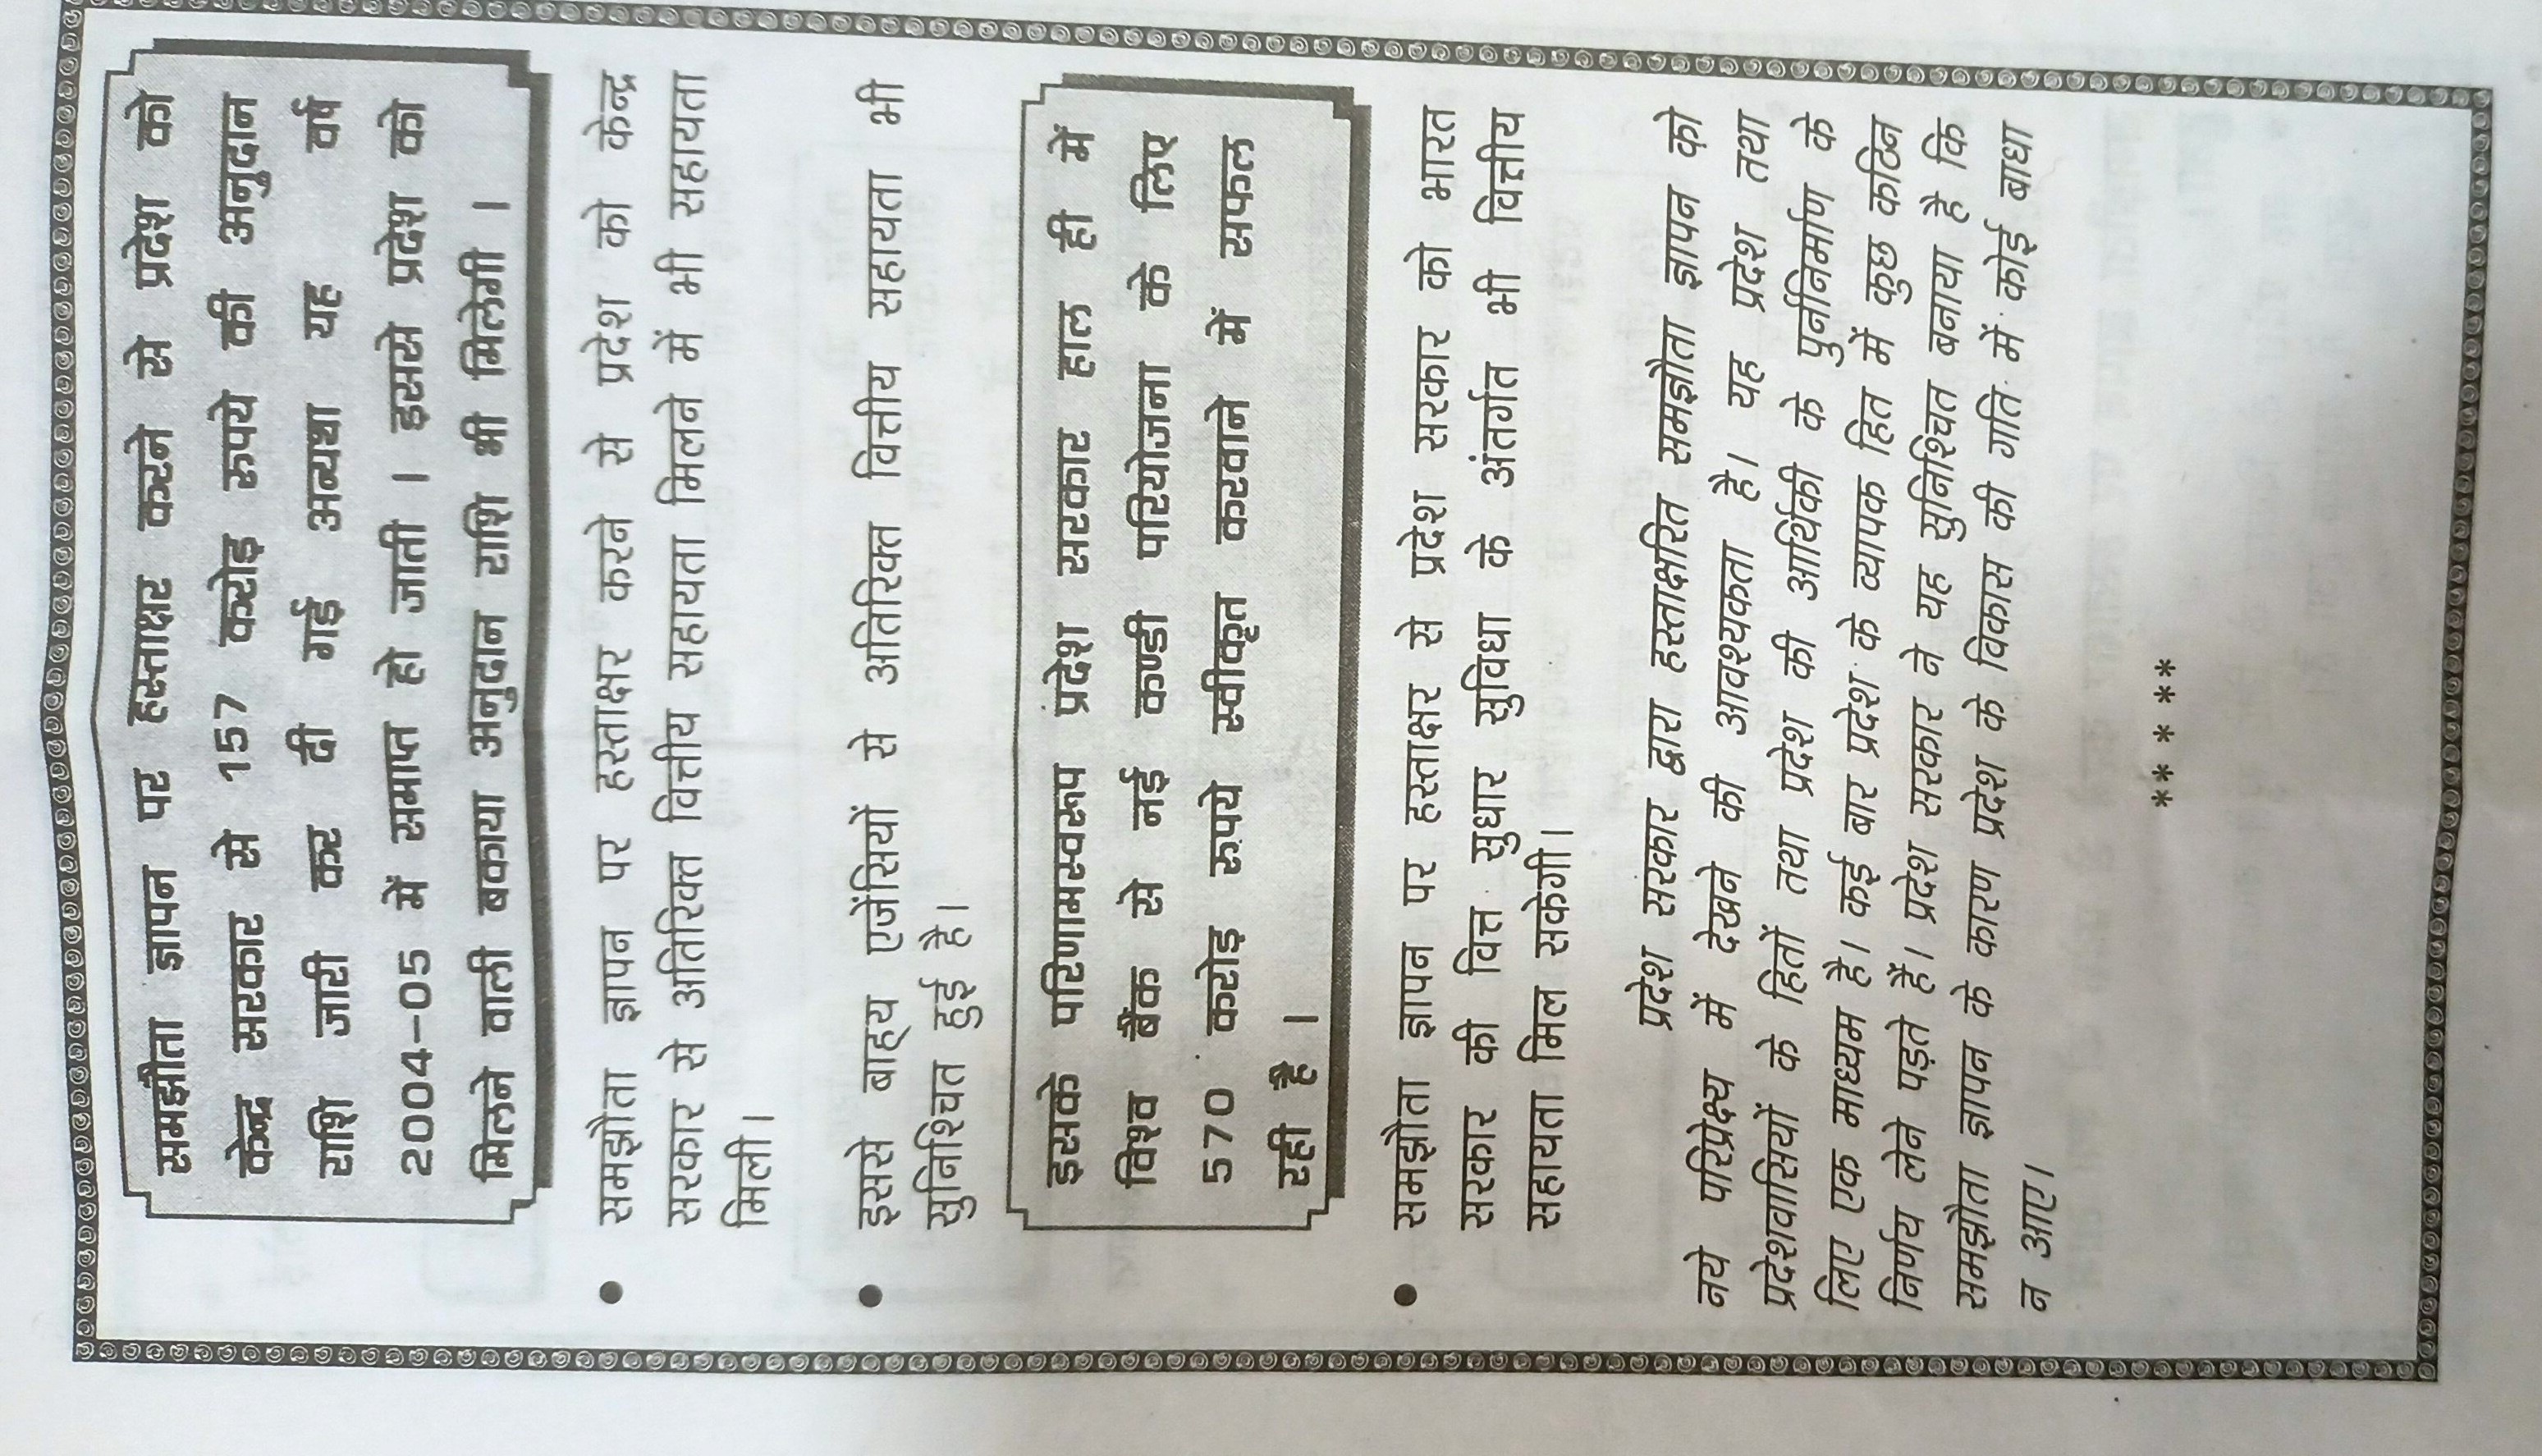 समझौता ज्ञापन पर हस्ताक्षर करने से प्रदेश को
केन्द्र सरकार से 157 करोड़ रूपये की अनुदान
राशि जारी कर दी गई अन्यथा यह वर्ष
2004-05 में समाप्त हो जाती । इससे प्रदेश को
मिलने वाली बकाया अनुदान राशि भी मिलेगी ।
● समझौता ज्ञापन पर हस्ताक्षर करने से प्रदेश को केन्द्र
सरकार से अतिरिक्त वित्तीय सहायता मिलने में भी सहायता
मिली।
● इससे बाह्य एजेंसियों से अतिरिक्त वित्तीय सहायता भी
सुनिश्चित हुई है।
इसके परिणामस्वरूप प्रदेश सरकार हाल ही में
विश्व बैंक से नई कण्डी परियोजना के लिए
570 करोड़ रूपये स्वीकृत करवाने में सफल
रही है ।
● समझौता ज्ञापन पर हस्ताक्षर से प्रदेश सरकार को भारत
सरकार की वित्त सुधार सुविधा के अंतर्गत भी वित्तीय
सहायता मिल सकेगी।
प्रदेश सरकार द्वारा हस्ताक्षरित समझौता ज्ञापन को
नये परिप्रेक्ष्य में देखने की आवश्यकता है। यह प्रदेश तथा
प्रदेशवासियों के हितों तथा प्रदेश की आर्थिकी के पुर्ननिर्माण के
लिए एक माध्यम है। कई बार प्रदेश के व्यापक हित में कुछ कठिन
निर्णय लेने पड़ते हैं। प्रदेश सरकार ने यह सुनिश्चित बनाया है कि
समझौता ज्ञापन के कारण प्रदेश के विकास की गति में कोई बाधा
न आए।
******